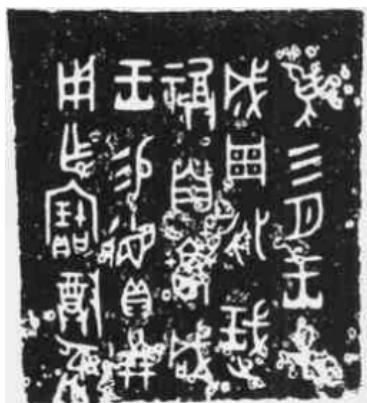 隹三月王才
成周征珷
福自蒿咸
王易德貝廿朋
用乍寶尊彝